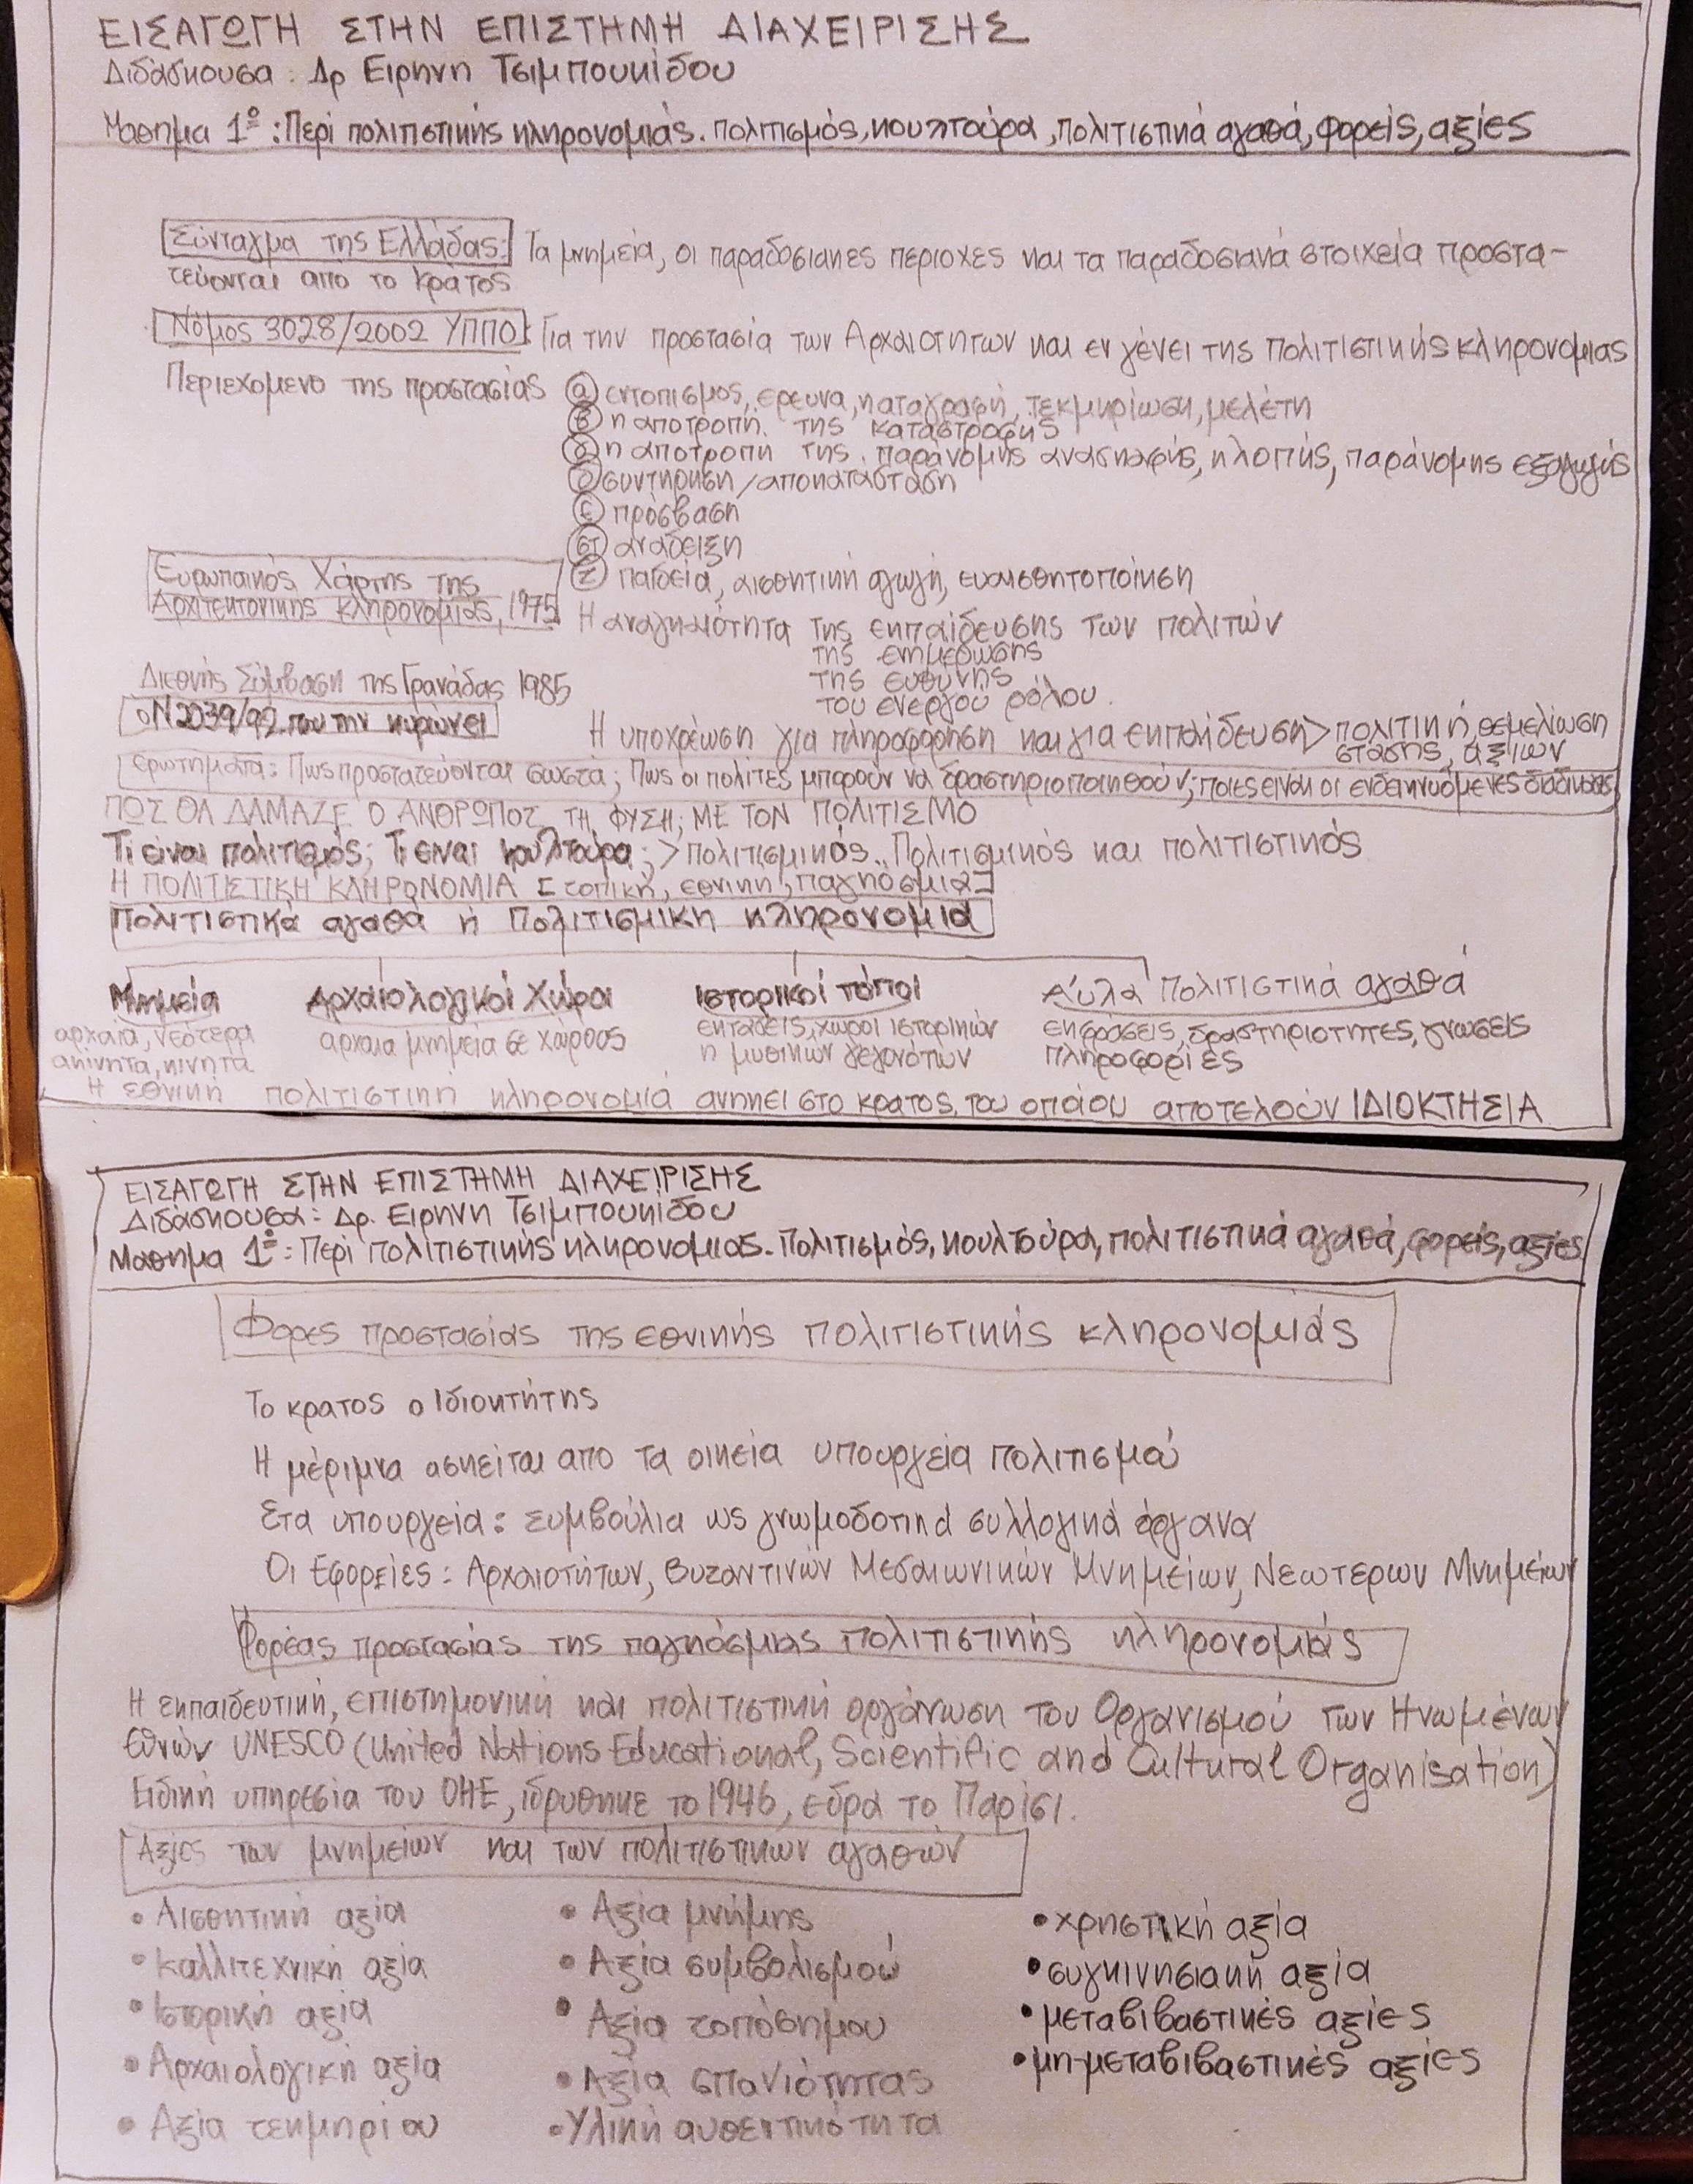 ΕΙΣΑΓΩΓΗ ΣΤΗΝ ΕΠΙΣΤΗΜΗ ΔΙΑΧΕΙΡΙΣΗΣ
Διδάσκουσα: Δρ Ειρηνη Τσιμπουκίδου
Μαθημα 1º: Περί πολιτιστικής κληρονομιάς. πολιτισμός, κουλτούρα, πολιτιστικά αγαθά, φορείς, αξίες
Σύνταγμα της Ελλάδας: Τα μνημεία, οι παραδοσιακες περιοχες και τα παραδοσιακά στοιχεία προστα-
τεύονται απο το κράτος
Νόμος 3028/2002 ΥΠΠΟ: Για την προστασία των Αρχαιοτητων και εν γένει της πολιτιστικής κληρονομιας
Περιεχομενο της προστασίας α εντοπισμος, έρευνα, καταγραφή, τεκμηρίωση, μελέτη
β η αποτροπή της καταστροφής
γ η αποτροπή της παράνομης ανασκαφής, κλοπής, παράνομης εξαγωγής
δ συντήρηση/αποκατάσταση
ε πρόσβαση
στ ανάδειξη
Ευρωπαικός Χάρτης της
ζ παιδεία, αισθητική αγωγή, ευαισθητοποίηση
Αρχιτεκτονικης κληρονομιας, 1975
Η αναγκαιότητα της εκπαίδευσης των πολιτών
της ενημέρωσης
της ευθύνης
Διεθνής Σύμβαση της Γρανάδας 1985
του ενεργού ρόλου.
ο Ν2039/92 που την κυρώνει
Η υποχρέωση για πληροφόρηση και για εκπαίδευση> πολιτική θεμελίωση
στάσης, αξιών
ερωτηματα: Πως προστατεύονται σωστα; Πως οι πολίτες μπορούν να δραστηριοποιηθούν; ποιες είναι οι ενδεικνυόμενες
ΠΩΣ ΘΑ ΔΑΜΑΖΕ Ο ΑΝΘΡΩΠΟΣ ΤΗ ΦΥΣΗ; ΜΕ ΤΟΝ ΠΟΛΙΤΙΣΜΟ
Τι είναι πολιτισμός; Τι ειναι κουλτούρα;> πολιτισμικός.. Πολιτισμικός και πολιτιστικός
Η ΠΟΛΙΤΙΣΤΙΚΗ ΚΛΗΡΟΝΟΜΙΑ [τοπική, εθνική, παγκόσμια]
Πολιτιστικά αγαθα ή Πολιτισμική κληρονομιά
Μνημεία Αρχαιολογικοί Χώροι Ιστορικοί τόποι Αϋλα Πολιτιστικά αγαθά
αρχαία, νεότερα αρχαια μνημεία σε χώρους εκτάσεις, χώροι ιστορικών εκφράσεις, δραστηριοτητες, γνωσεις
ακίνητα, κινητά ή μυθικών γεγονότων πληροφορίες
Η εθνική πολιτιστική κληρονομιά ανηκει στο κρατος, του οποίου αποτελούν ΙΔΙΟΚΤΗΣΙΑ
ΕΙΣΑΓΩΓΗ ΣΤΗΝ ΕΠΙΣΤΗΜΗ ΔΙΑΧΕΙΡΙΣΗΣ
Διδάσκουσα: Δρ. Ειρηνη Τσιμπουκίδου
Μαθημα 1º: Περί πολιτιστικής κληρονομιας. Πολιτισμός, κουλτούρα, πολιτιστικά αγαθά, φορείς, αξίες
Φορες προστασίας της εθνικής πολιτιστικής κληρονομιάς
Το κρατος ο Ιδιοκτήτης
Η μέριμνα ασκείται απο τα οικεία υπουργεία πολιτισμού
Στα υπουργεία: συμβούλια ως γνωμοδοτικά συλλογικά όργανα
Οι Εφορείες: Αρχαιοτήτων, Βυζαντινών Μεσαιωνικών Μνημείων, Νεωτερων Μνημείων
Φορέας προστασίας της παγκόσμιας πολιτιστικής κληρονομιάς
Η εκπαιδευτική, επιστημονική και πολιτιστική οργάνωση του Οργανισμού των Ηνωμένων
Εθνών UNESCO (United Nations Educational, Scientific and Cultural Organisation)
Ειδική υπηρεσία του ΟΗΕ, ιδρυθηκε το 1946, εδρα το Παρίσι.
Αξίες των μνημείων και των πολιτιστικων αγαθών
• Αισθητική αξία • Αξία μνήμης • χρηστική αξία
• καλλιτεχνική αξία • Αξία συμβολισμού • συγκινησιακή αξία
• Ιστορική αξία • Αξία τοπόσημου • μεταβιβαστικές αξίες
• Αρχαιολογική αξία • Αξία σπανιότητας • μη-μεταβιβαστικές αξίες
• Αξία τεκμηρίου • Υλική αυθεντικότητα